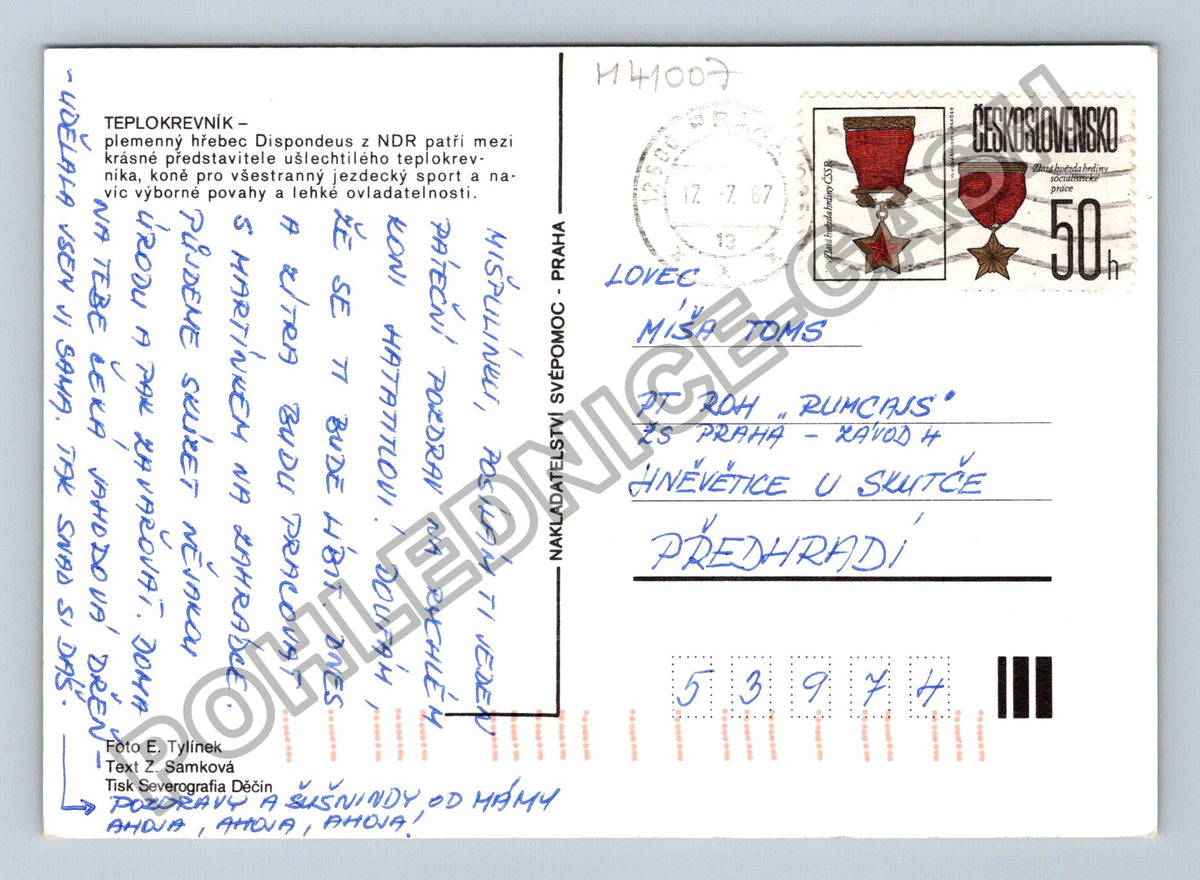 M41007
TEPLOKREVNÍK –
plemenný hřebec Dispondeus z NDR patří mezi
krásné představitele ušlechtilého teplokrev-
níka, koně pro všestranný jezdecký sport a na-
víc výborné povahy a lehké ovladatelnosti.
MIŠPULÍNKU, POSÍLÁM TI JEDEN
PÁTEČNÍ POZDRAV NA RYCHLÉM
KONI HATATITLOVI. DOUFÁM,
ŽE SE TI BUDE LÍBIT. DNES
A ZÍTRA BUDU PRACOVAT
S MARTÍNKEM NA ZAHRÁDCE.
PŮJDEME SKLÍZET NĚJAKOU
ÚRODU A PAK ZAVAŘOVAT. DOMA
NA TEBE ČEKÁ JAHODOVÁ DŘEŇ –
– UDĚLALA JSEM JI SAMA, TAK SNAD SI DÁŠ.
POZDRAVY A ŠUŠNINDY OD MÁMY
AHOJA, AHOJA, AHOJA!
Foto E. Tylínek
Text Z. Samková
Tisk Severografia Děčín
NAKLADATELSTVÍ SVÉPOMOC - PRAHA
PRAHA
17. -7. 87
19
ČESKOSLOVENSKO
Zlatá hvězda hrdiny ČSSR
Zlatá hvězda hrdiny
socialistické
práce
50h
LOVEC
MÍŠA TOMS
PT ROH „RUMCAJS"
ZS PRAHA – ZÁVOD 4
HNĚVĚTICE U SKUTČE
PŘEDHRADÍ
53974
POHLEDNICE-GASH